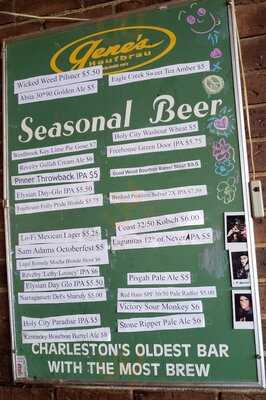 Gene's
Haufbrau
Wicked Weed Pilsner $5.50
Eagle Creek Sweet Tea Amber $5
Abita 30°90 Golden Ale $5
Seasonal Beer
Holy City Washout Wheat $5
Westbrook Key Lime Pie Gose $7
Freehouse Green Door IPA $5.75
Revelry Gullah Cream Ale $6
Pinner Throwback IPA $5
Good Wood Bourbon Barrel Stout $9.5
Elysian Day-Glo IPA $5.50
Freehouse Folly Pride Blonde $5.75
Lo-Fi Mexican Lager $5.25
Coast 32/50 Kolsch $6.00
Sam Adams Octoberfest $5
Lagunitas 12th of Never IPA $5
Revelry Lefty Loosey IPA $6
Pisgah Pale Ale $5
Elysian Day Glo IPA $5.50
Narragansett Del's Shandy $5.00
Victory Sour Monkey $6
Holy City Paradise IPA $5
Stone Ripper Pale Ale $6
Kentucky Bourbon Barrel Ale $8
CHARLESTON'S OLDEST BAR
WITH THE MOST BREW